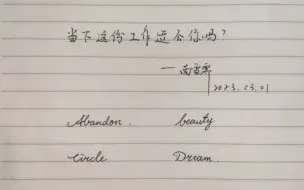 当下这份工作适合你吗？
一南雪寒
2023.03.01
Abandon. beauty
Circle Dream.